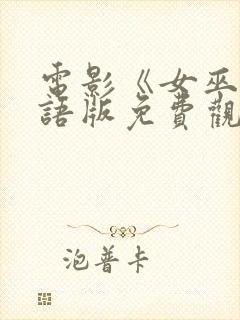 電影《女巫
語版免費觀
泡普卡